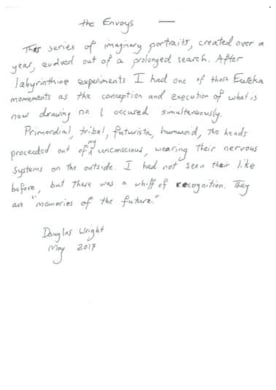 the Envoys —
This series of imaginary portraits, created over a
year, evolved out of a prolonged search. After
labyrinthine experiments I had one of those Eureka
moments as the conception and execution of what is
now drawing no. 1 occured simultaneously.
Primordial, tribal, futuristic, humanoid, the heads
proceeded out of my unconscious, wearing their nervous
systems on the outside. I had not seen their like
before, but there was a whiff of recognition. They
are "memories of the future."
Douglas Wright
May 2017